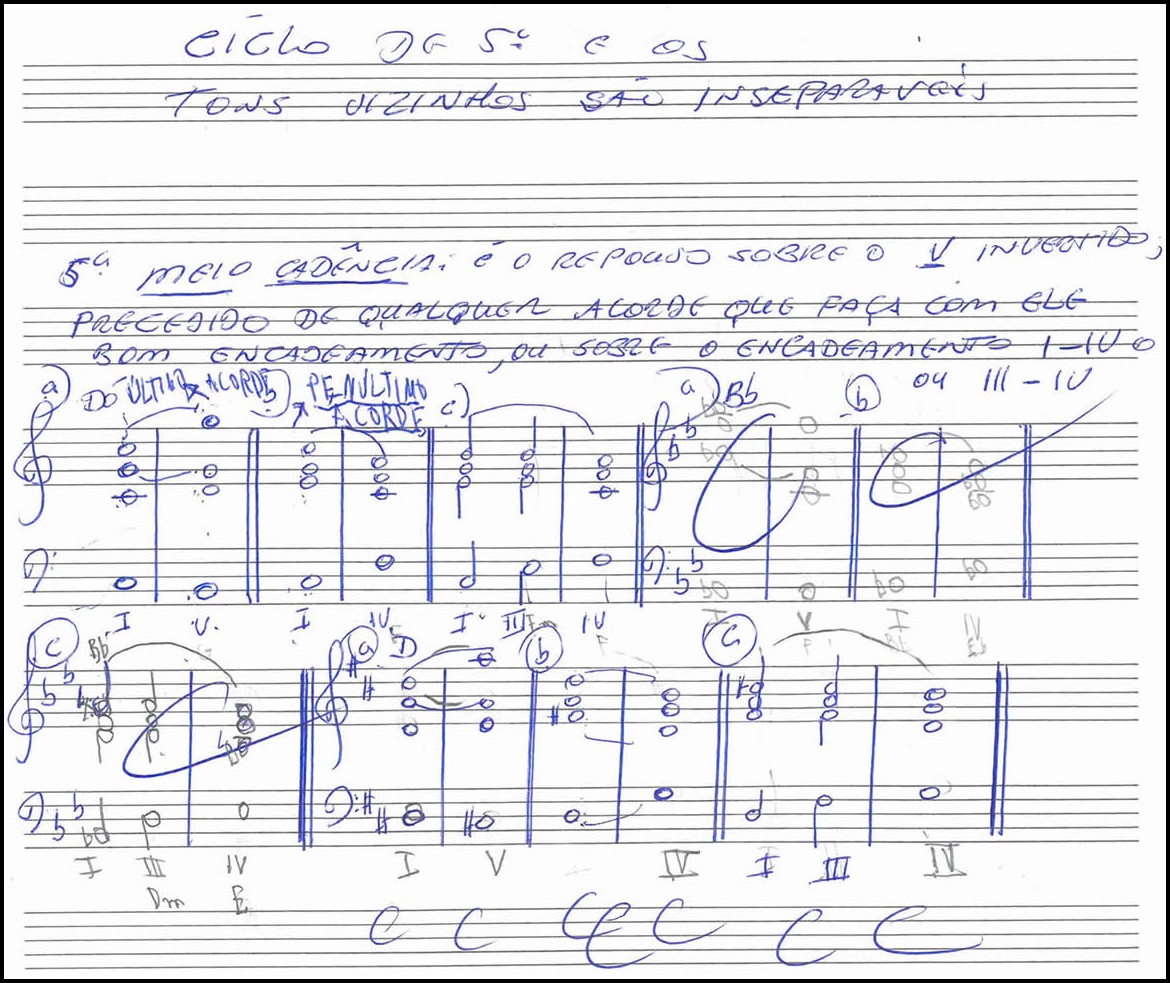 CICLO DE 5ª E OS
TONS VIZINHOS SÃO INSEPARAVÉIS
5ª MEIO CADÊNCIA: É O REPOUSO SOBRE O V INVERTIDO,
PRECEDIDO DE QUALQUER ACORDE QUE FAÇA COM ELE
BOM ENCADEAMENTO, OU SOBRE O ENCADEAMENTO I-IV
OU III-IV
a) DO ÚLTIMO ACORDE b) PENÚLTIMO c) a) Bb b
ACORDE
I V I IV I III IV I V I IV
C Bb a D b C
I III IV I V IV I III IV
Dm E
C C C C C C C